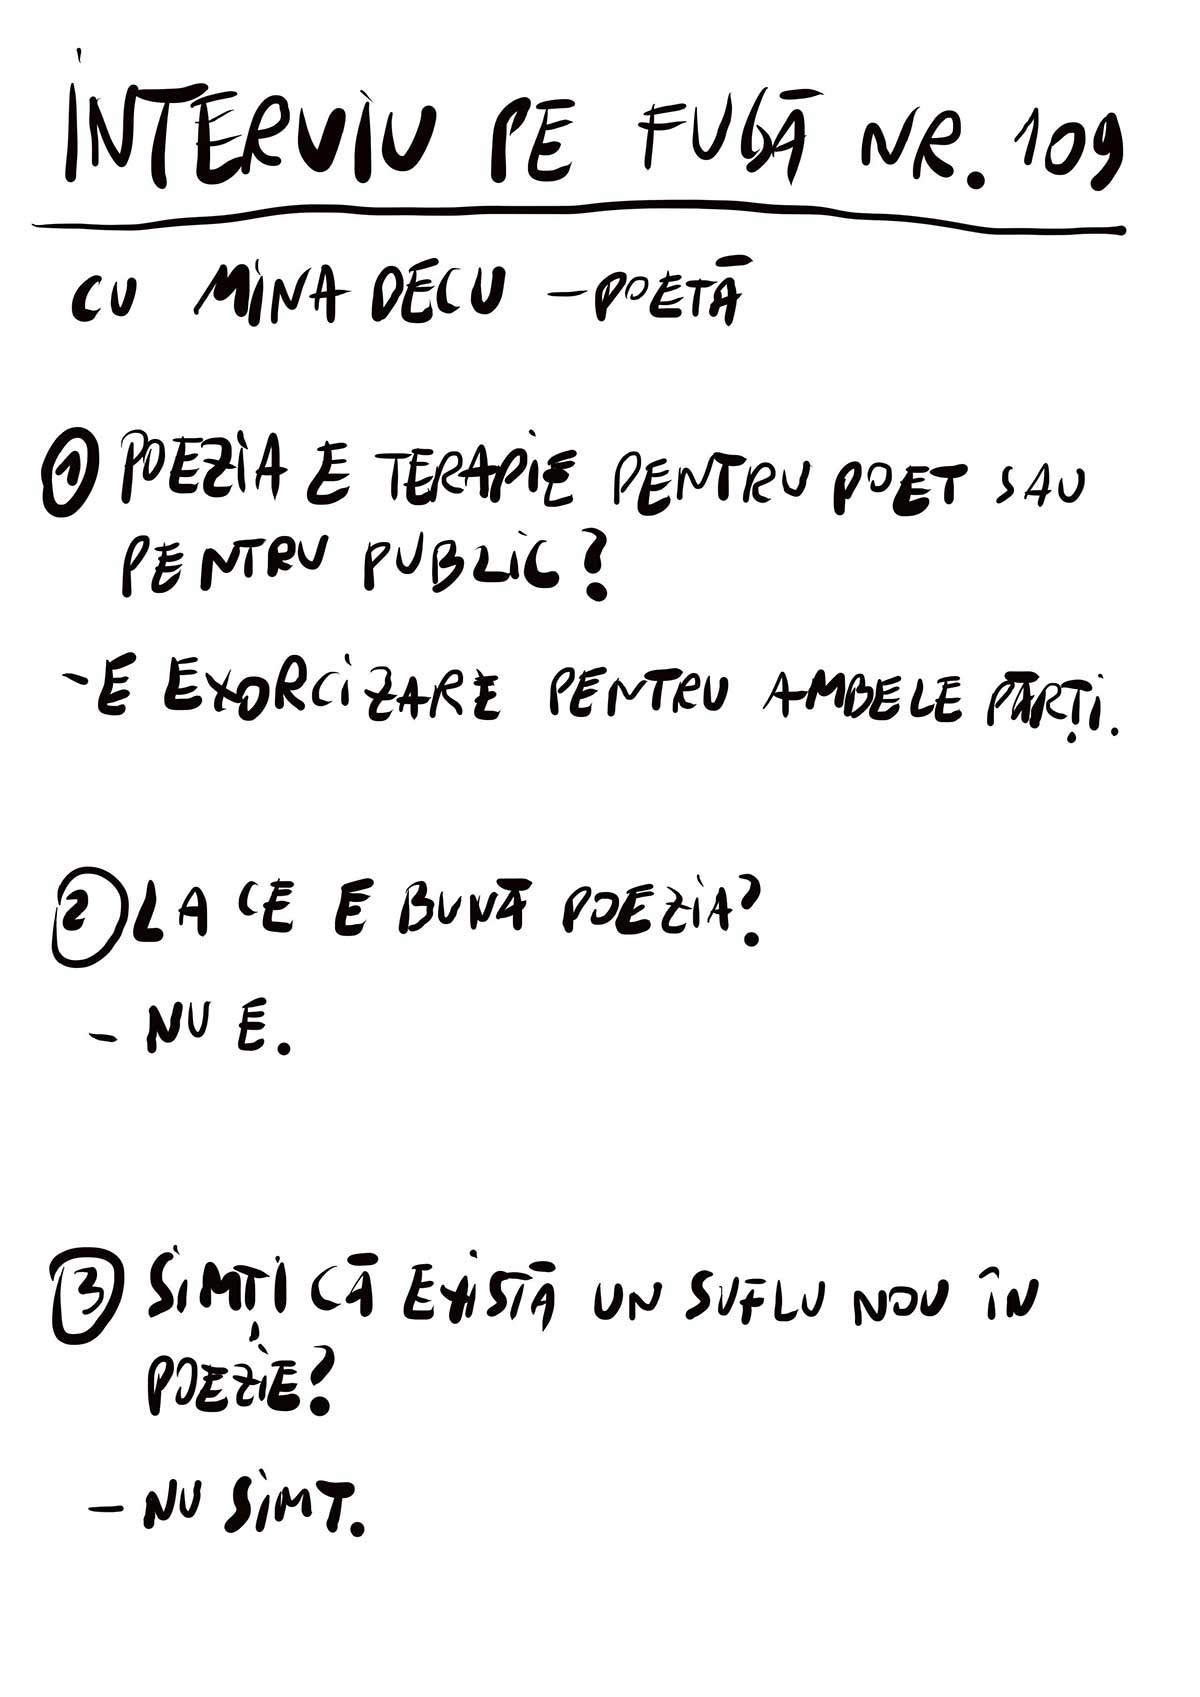 INTERVIU PE FUGĂ NR. 109
CU MINA DECU - POETĂ
1 POEZIA E TERAPIE PENTRU POET SAU
PENTRU PUBLIC?
- E EXORCIZARE PENTRU AMBELE PĂRȚI.
2 LA CE E BUNĂ POEZIA?
- NU E.
3 SIMȚI CĂ EXISTĂ UN SUFLU NOU ÎN
POEZIE?
- NU SIMT.